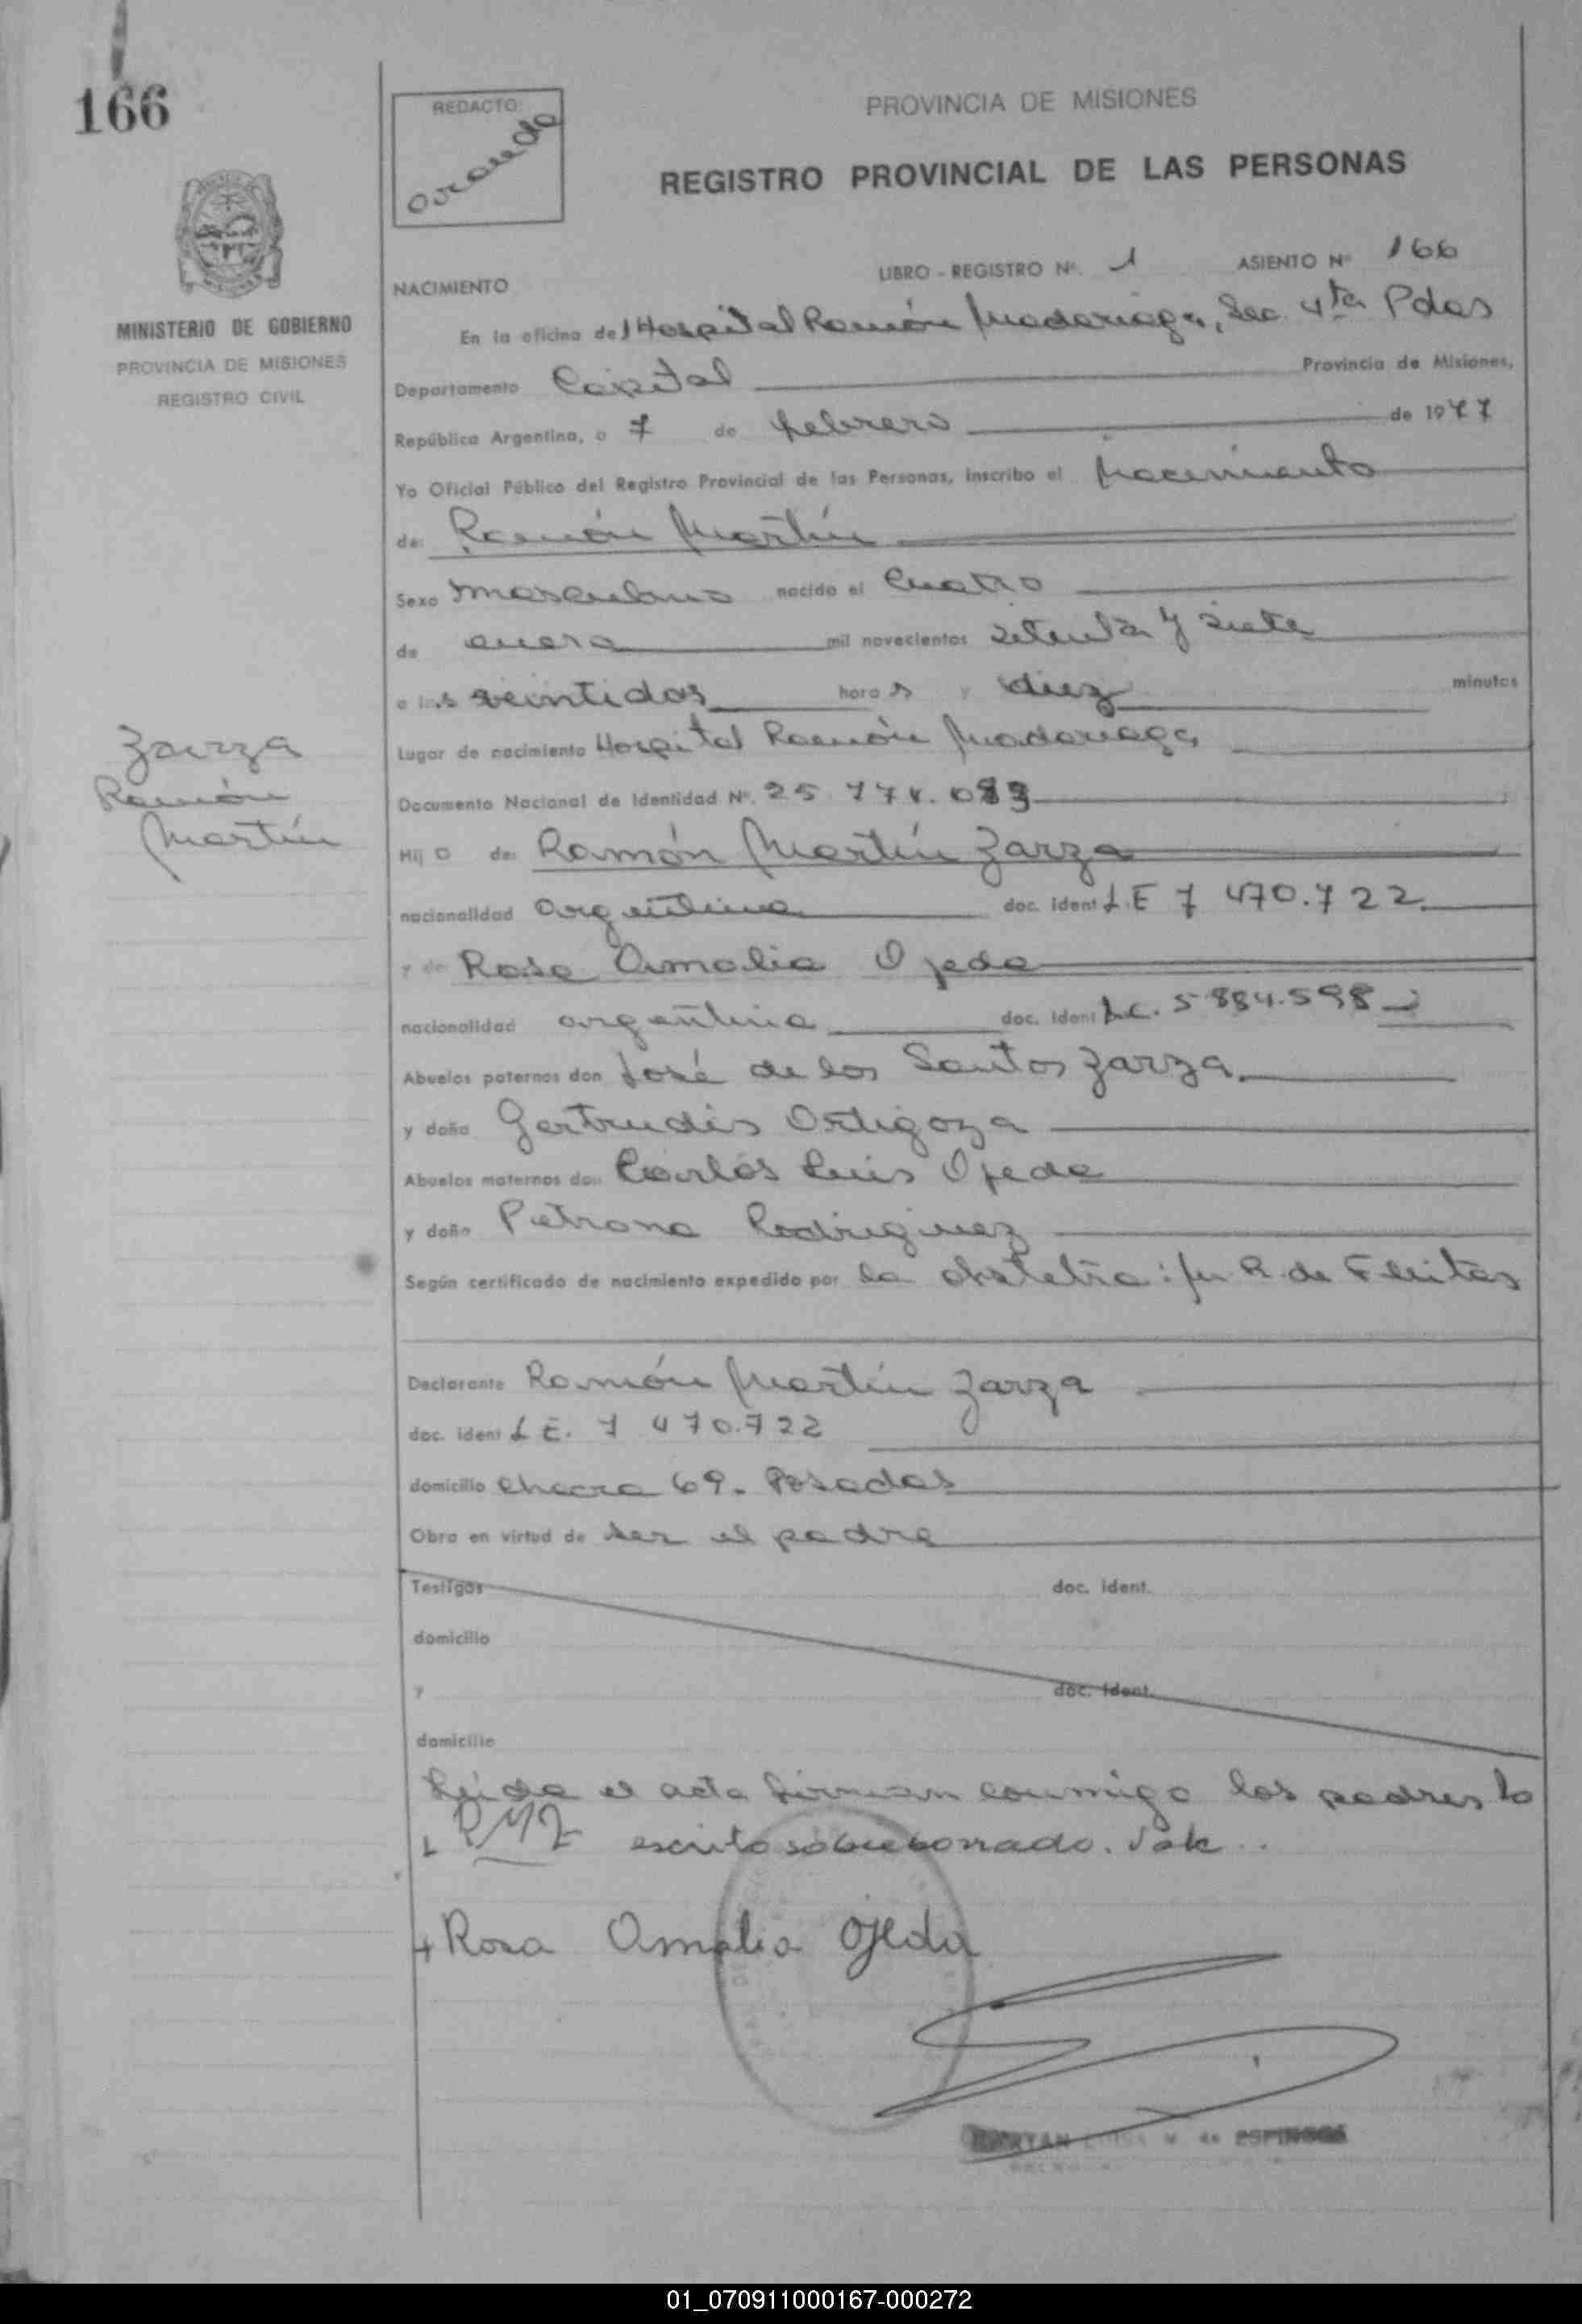 166
REDACTO
PROVINCIA DE MISIONES
REGISTRO PROVINCIAL DE LAS PERSONAS
MINISTERIO DE GOBIERNO
PROVINCIA DE MISIONES
REGISTRO CIVIL
LIBRO - REGISTRO Nº. 1 ASIENTO Nº 166
NACIMIENTO
En la oficina del Hospital Ramón Madariaga, Sec. 4ta Pdas
Departamento Capital Provincia de Misiones,
República Argentina, a 7 de febrero de 1977
Yo Oficial Público del Registro Provincial de las Personas, inscribo el nacimiento
de: Ramón Martín
Sexo masculino nacido el cuatro
de enero mil novecientos setenta y siete
a las veintidos horas y diez minutos
Lugar de nacimiento Hospital Ramón Madariaga
Zarza
Ramón
Martín
Documento Nacional de Identidad Nº. 25 774.083
Hijo de: Ramón Martín Zarza
nacionalidad argentina doc. ident L.E 7 470.722
y de Rosa Amalia Ojeda
nacionalidad argentina doc. ident L.C. 5 884.598
Abuelos paternos don José de los Santos Zarza
y doña Gertrudis Ortigoza
Abuelos maternos don Carlos Luis Ojeda
y doña Petrona Rodriguez
Según certificado de nacimiento expedido por la obstetra: R. de Fleitas
Declarante Ramón Martín Zarza
doc. ident L E. 7 470.722
domicilio chacra 69. Posadas
Obra en virtud de ser el padre
Testigos doc. ident.
domicilio
y doc. ident.
domicilio
Leida el acta firman conmigo los padres lo
RMZ escrito sobreborrado. Vale.
Rosa Amalia Ojeda
M. de ESPINOSA
01_070911000167-000272